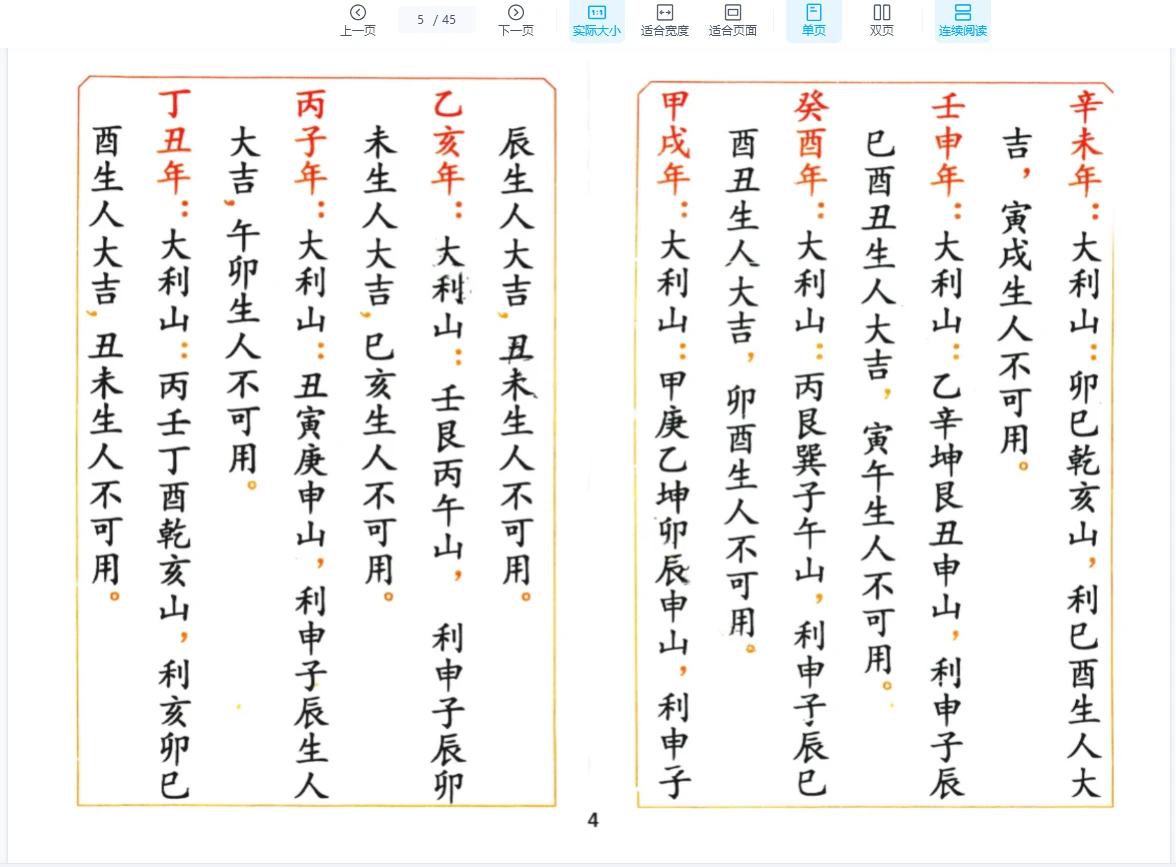 上一页
5 / 45
下一页
1:1
实际大小
适合宽度
适合页面
单页
双页
连续阅读
辛未年：大利山：卯巳乾亥山，利巳酉生人大
吉，寅戌生人不可用。
壬申年：大利山：乙辛坤艮丑申山，利申子辰
巳酉丑生人大吉，寅午生人不可用。
癸酉年：大利山：丙艮巽子午山，利申子辰巳
酉丑生人大吉，卯酉生人不可用。
甲戌年：大利山：甲庚乙坤卯辰申山，利申子
辰生人大吉，丑未生人不可用。
乙亥年：大利山：壬艮丙午山，利申子辰卯
未生人大吉，巳亥生人不可用。
丙子年：大利山：丑寅庚申山，利申子辰生人
大吉，午卯生人不可用。
丁丑年：大利山：丙壬丁酉乾亥山，利亥卯巳
酉生人大吉，丑未生人不可用。
4